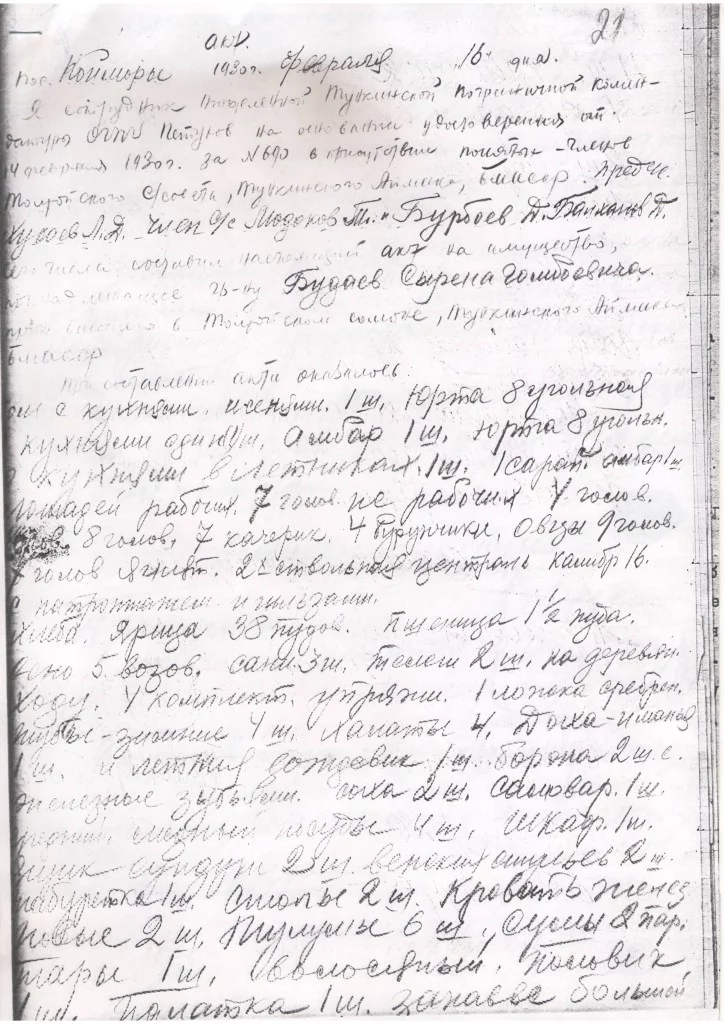 21
акт.
пос. Койморы 1930 г. февраля 16 дня.
Я сотрудник Тункинской пограничной комен-
датуры ОГПУ Петунов на основании удостоверения от
14 февраля 1930 г. за № в присутствии понятых - членов
Толтойского с/совета, Тункинского Аймака, бмасср. Предс/с.
Л.Д. член с/с Модонов и Бурбаев Д. Д.
числа составил настоящий акт на имущество,
гр-ну Будаев Сырена Гомбоевича.
в сомоне, Тункинского Аймака
бмасср
При составлении акта оказалось:
с кухнями. 1 ш. Юрта 8 угольная
кухнями 1 ш. Амбар 1 ш. Юрта 8 угольн.
кухнями в летниках. 1 ш. 1 сарай. амбар 1 ш.
лошадей рабочих. 7 голов. не рабочих 4 голов.
8 голов. 7 качерик. 4 бурунчики, Овцы 9 голов.
голов ягнят. 2х ствольная централь калибр 16.
с патронташем и гильзами.
хлеба. Ярица 38 пудов. пшеница 1½ пуда.
сено 5 возов. сани 3 ш. телег 2 ш. на деревян.
ходу. 4 комплект. упряжи. 1 ложка сребрен.
шубы - зимние 4 ш. лапаты 4, Доха - иманья
1 ш. и летния дождевик 1 ш. борона 2 ш. с.
железные зубьями. соха 2 ш. самовар. 1 ш.
медный посуды 4 ш, шкаф. 1 ш.
ящик сундук 2 ш. венских стульев 2 ш.
табуретка 1 ш. столье 2 ш. Кровать желез
новые 2 ш. Тулупы 6 ш., Сумы 2 пар.
1 ш, половик
1 ш. палатка 1 ш. занавес большой